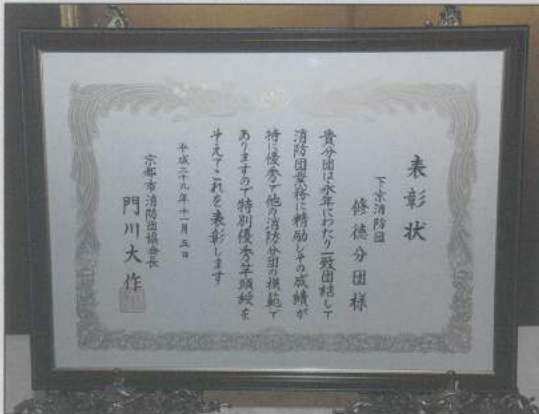 表彰状
下京消防団
修徳分団様
貴分団は永年にわたり一致団結して
消防団業務に精励しその成績が
特に優秀で他の消防分団の模範で
ありますので特別優秀竿頭綬を
そえてこれを表彰します
平成二十九年十一月五日
京都市消防団協会長
門川大作